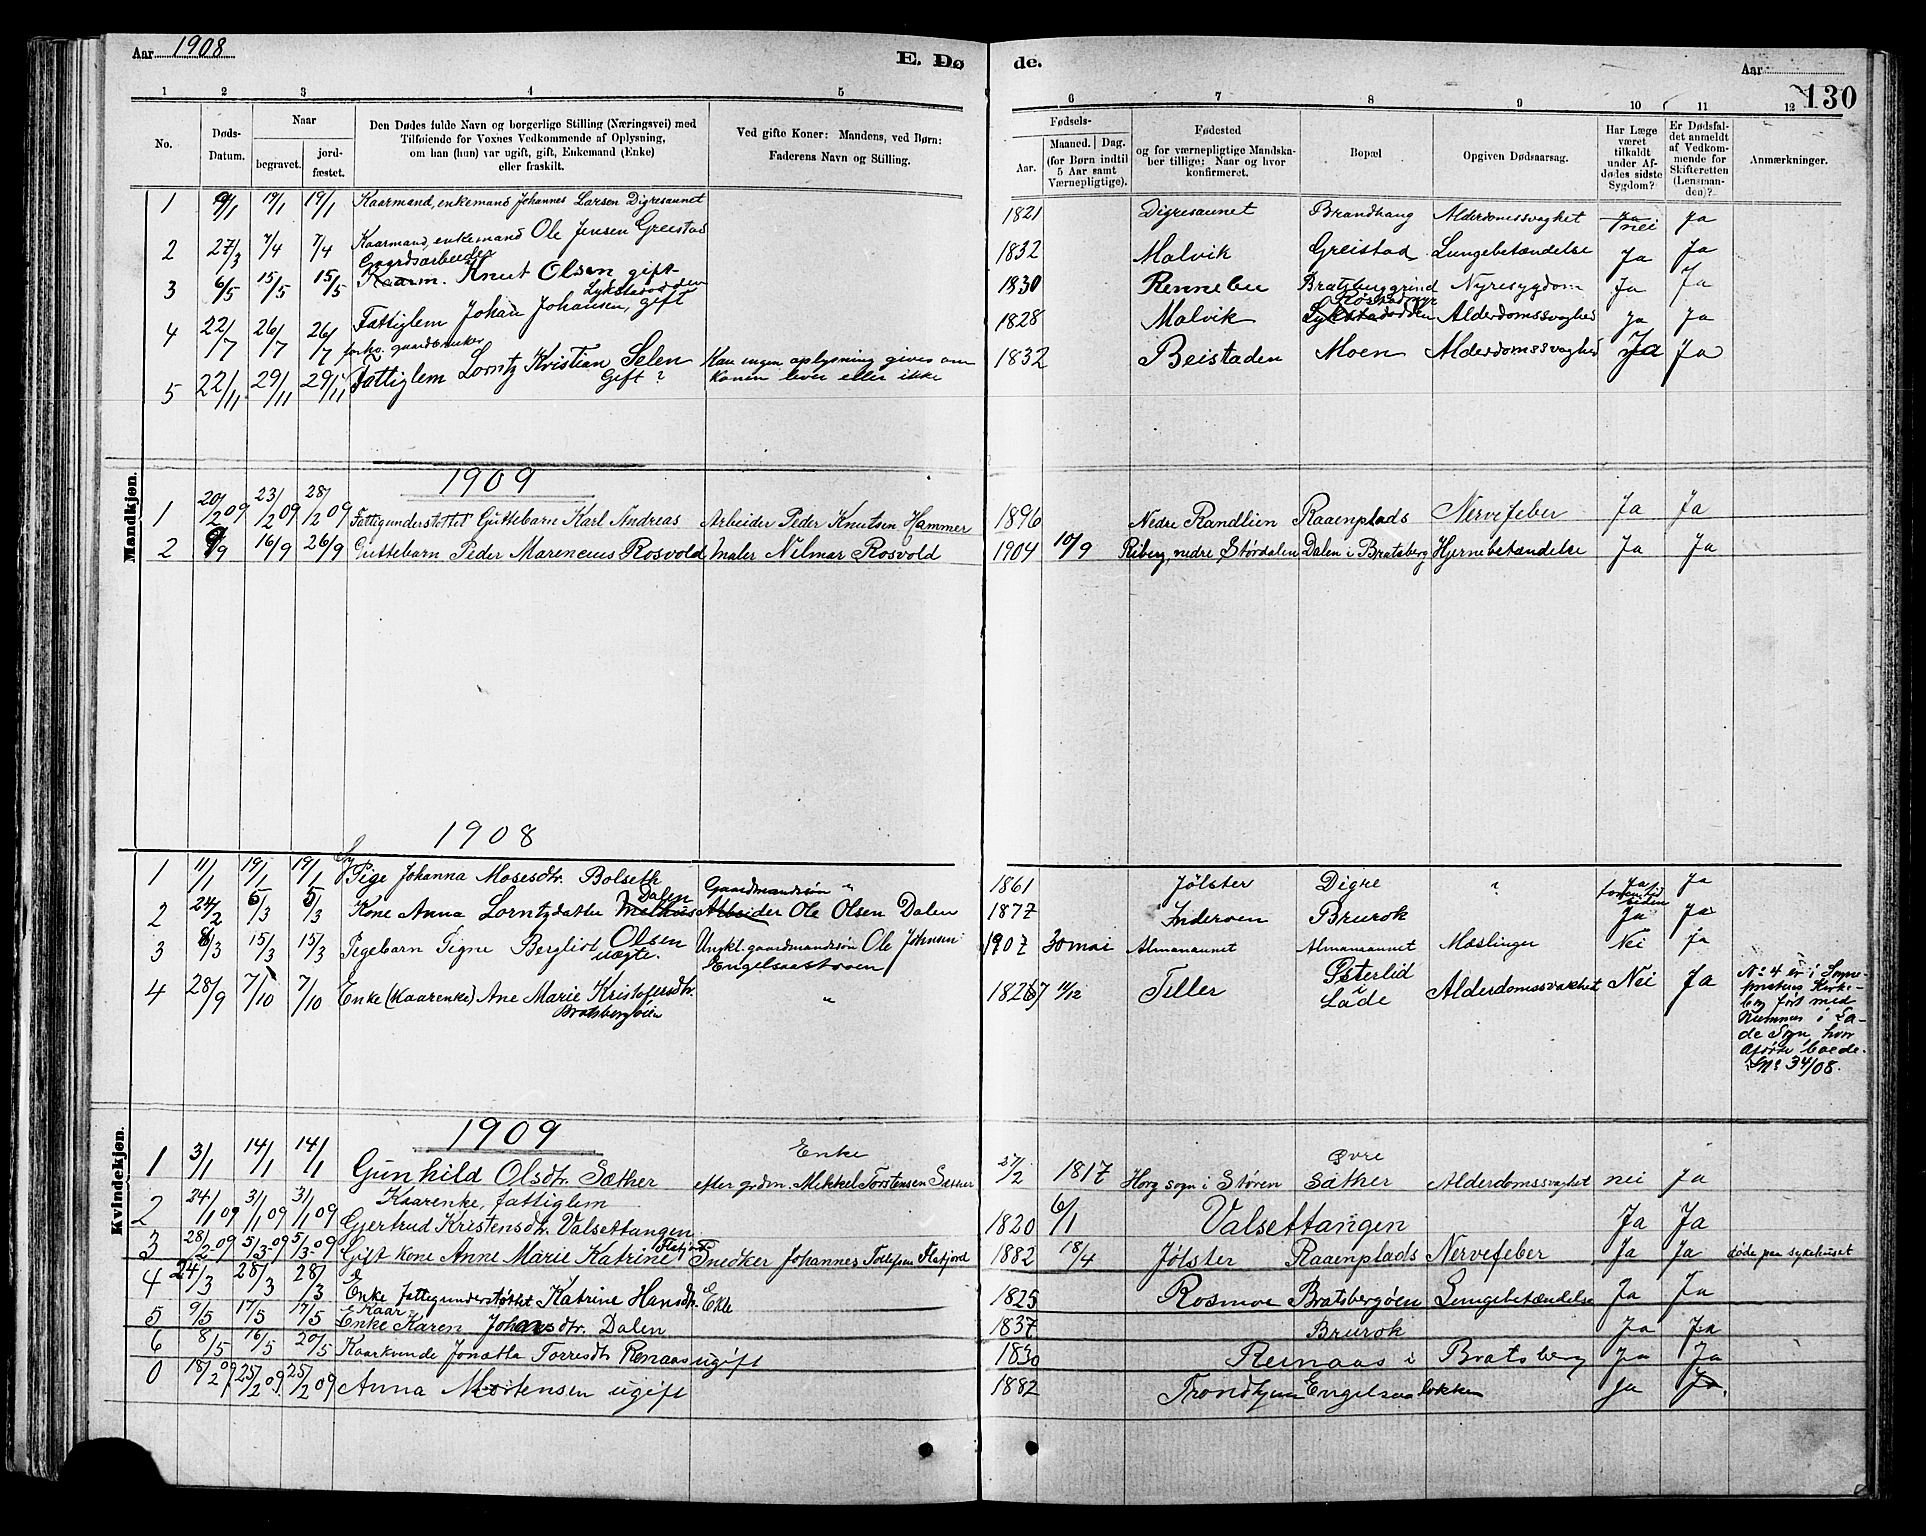 Aar 1908
E. Dø
de.
Aar
130
1 2 3 4 5 6 7 8 9 10 11 12
No.
Døds-
Datum.
Naar
begravet.
jord-
fæstet.
Den Dødes fulde Navn og borgerlige Stilling (Næringsvei) med
Tilføiende for Voxnes Vedkommende af Oplysning,
om han (hun) var ugift, gift, Enkemand (Enke)
eller fraskilt.
Ved gifte Koner: Mandens, ved Børn:
Faderens Navn og Stilling.
Fødsels-
Aar.
Maaned. Dag.
(for Børn indtil
5 Aar samt
Værnepligtige).
Fødested
og for værnepligtige Mandska-
ber tillige: Naar og hvor
konfirmeret.
Bopæl
Opgiven Dødsaarsag.
Har Læge
været
tilkaldt
under Af-
dødes sidste
Sygdom?
Er Dødsfal-
det anmeldt
af Vedkom-
mende for
Skifteretten
(Lensman-
den)?
Anmærkninger.
Mandkjøn.
1 9/1 19/1 19/1 Kaarmand, enkemand Johannes Larsen Digresaunet 1821 Digresaunet Brandhaug Alderdomssvaghet Ja nei Ja
2 27/3 7/4 7/4 Kaarmand, enkemand Ole Jensen Greistad 1832 Malvik Greistad Lungebetændelse Ja Ja
Gaardsarbeider
3 6/5 15/5 15/5 Kaarm. Knut Olsen gift 1830 Rennebu Bratsberggrind Nyresygdom Ja Ja
Lykstadodden Røstadmyr
4 22/7 26/7 26/7 Fattiglem Johan Johansen, gift 1828 Malvik Lykstadodden Alderdomssvaghed Ja Ja
forhv. gaardbruker
5 22/11 29/11 29/11 Fattiglem Lorntz Kristian Selen Kan ingen oplysning gives om 1832 Beistaden Moen Alderdomssvaghed Ja Ja
Gift? konen lever eller ikke
1909
1 20/2 09 23/2 09 28/2 09 Fattigunderstøttet Guttebarn Karl Andreas Arbeider Peder Knutsen Hammer 1896 Nedre Randlien Raaenplads Nervefeber Ja Ja
2 9/9 16/9 26/9 Guttebarn Peder Marencius Rosvold Maler Nilmar Rosvold 1904 10/9 Riberg, nedre Størdalen Dalen i Bratsberg Hjernebetændelse Ja Ja
Kvindekjøn.
1908
1 11/1 19/1 19/1 Pige Johanna Mosesdtr. Bolseth " 1861 Jølster Digre " Ja Ja
Dalen Gaardmandssøn
2 24/2 5/3 5/3 Kone Anna Lorntzdatter Melhus Arbeider Ole Olsen Dalen 1877 Inderøen Brurok Ja Ja
3 8/3 15/3 15/3 Pigebarn Signe Bergliot Olsen Ungkl. gaardmandssøn Ole Johnsen 1907 30 mai Almaasaunet Almaasaunet Mæslinger Nei Ja
uægte. Engelsaastrøen
4 28/9 7/10 7/10 Enke (Kaarenke) Ane Marie Kristofersdtr. " 1827 11/12 Tiller Østerlid Alderdomssvakhet Nei Ja
Bratsbergveien i
Lade
No 4 er i Sogne-
prestens Kirke-
bog ført med
Nummer i La-
de Sogn, hvor
Afdøde boede.
No 34/08.
1909
1 3/1 14/1 14/1 Enke 27/2 1817 Horg sogn i Støren Øvre
Gunhild Olsdtr. Sæther efter grdm. Mikkel Torstensen Sæther Sæther Alderdomssvaghet nei Ja
Kaarenke, fattiglem
2 24/1 09 31/1 09 31/1 09 Gjertrud Kristensdtr. Valsettangen 1820 6/1 Valsettangen Ja Ja
3 28/2-09 5/3-09 5/3-09 Gift kone Anne Marie Katrine Flatjord Snedker Johannes Tollefsen Flatjord 1882 18/4 Jølster Raaenplads Nervefeber Ja Ja døde paa sykehuset
4 24/3 28/3 28/3 Enke Fattigunderstøttet Katrine Hansdtr. Ekle 1825 Rosmoe Bratsbergøen Lungebetændelse Ja Ja
Kaar
5 9/5 17/5 17/5 Enke Karen Johansdtr. Dalen 1837 Brurok Ja Ja
6 8/5 16/5 20/5 Kaarkvinde Jonetta Torresdtr Renaas ugift 1830 Reinaas i Bratsberg Ja Ja
0 18/2 09 25/2 09 25/2 09 Anna Mortensen ugift 1882 Trondhjem Engelsaaløkken Ja Ja